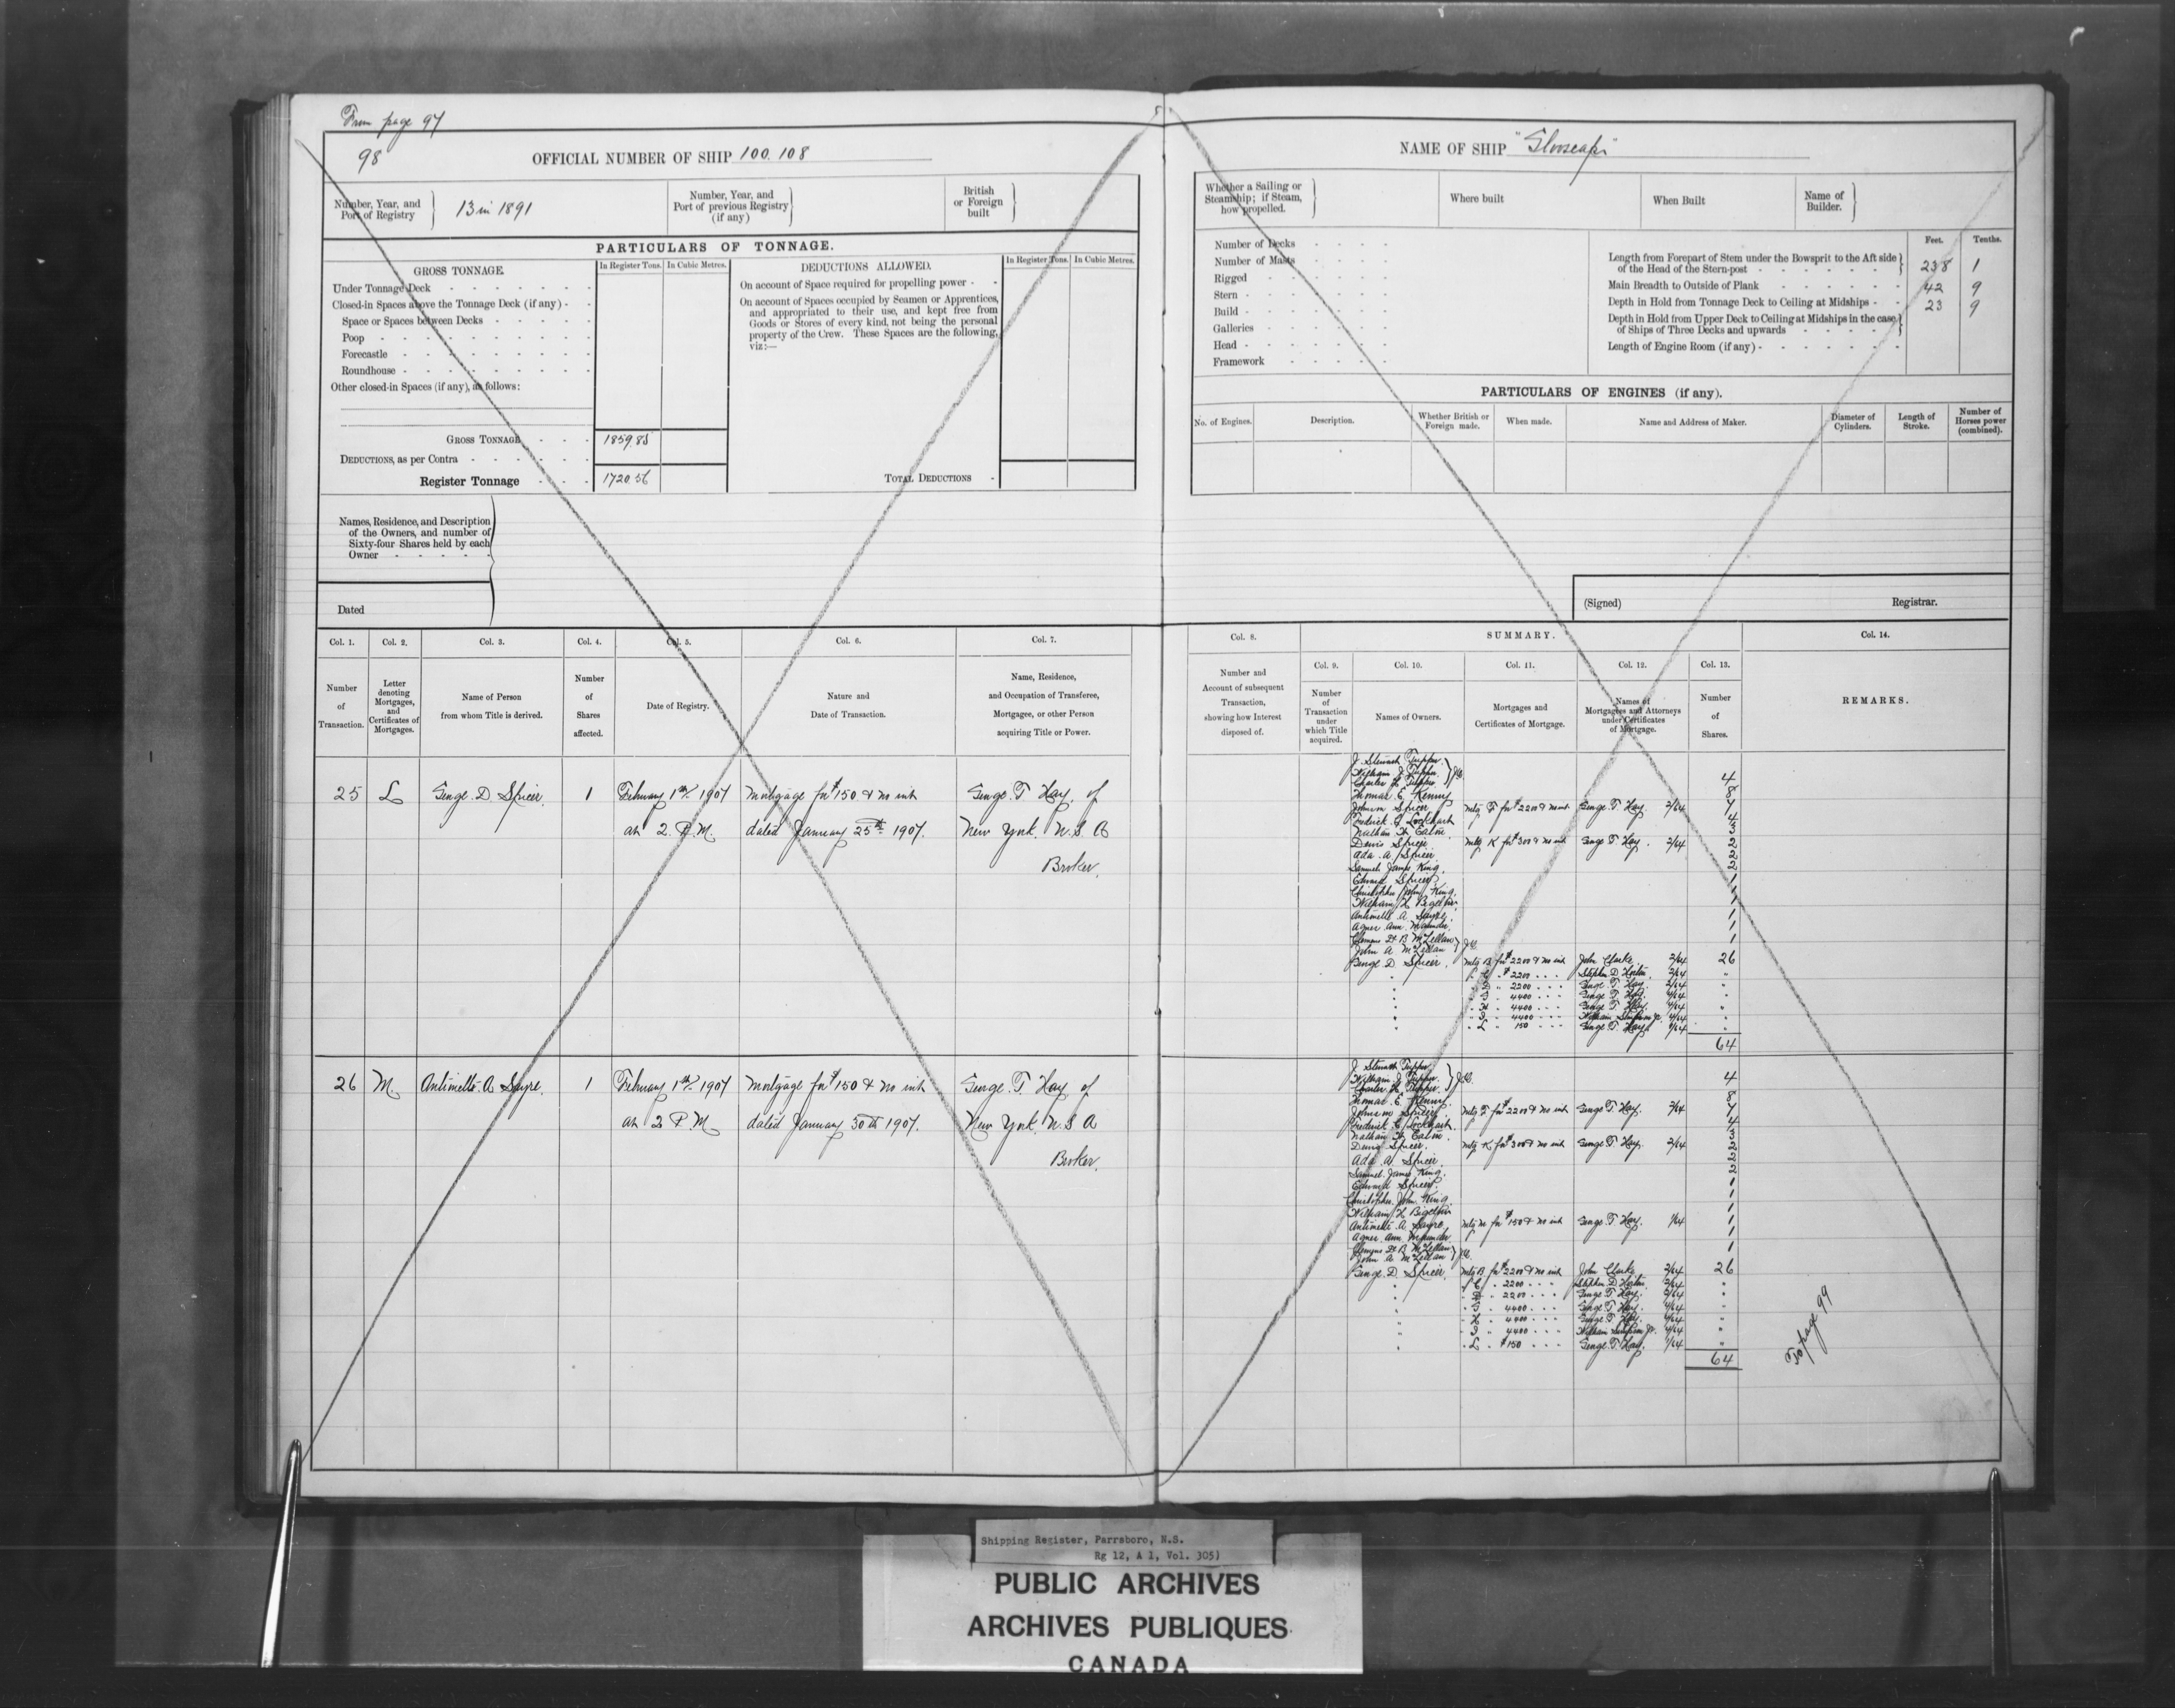 From page 97
98
OFFICIAL NUMBER OF SHIP 100.108
Number, Year, and Port of Registry
13 in 1891
Number, Year, and Port of previous Registry (if any)
British or Foreign built
PARTICULARS OF TONNAGE.
GROSS TONNAGE.
In Register Tons.
In Cubic Metres.
DEDUCTIONS ALLOWED.
In Register Tons.
In Cubic Metres.
Under Tonnage Deck
Closed-in Spaces above the Tonnage Deck (if any)
Space or Spaces between Decks
Poop
Forecastle
Roundhouse
Other closed-in Spaces (if any), as follows:
On account of Space required for propelling power
On account of Spaces occupied by Seamen or Apprentices,
and appropriated to their use, and kept free from
Goods or Stores of every kind, not being the personal
property of the Crew. These Spaces are the following,
viz:—
GROSS TONNAGE 1859 85
DEDUCTIONS, as per Contra
Register Tonnage 1720.56
TOTAL DEDUCTIONS
Names, Residence, and Description
of the Owners, and number of
Sixty-four Shares held by each
Owner
Dated
Col. 1. Col. 2. Col. 3. Col. 4. Col. 5. Col. 6. Col. 7.
Number of Transaction.
Letter denoting Mortgages, and Certificates of Mortgages.
Name of Person from whom Title is derived.
Number of Shares affected.
Date of Registry.
Nature and Date of Transaction.
Name, Residence, and Occupation of Transferee, Mortgagee, or other Person acquiring Title or Power.
25 L George. D. Spicer. 1 February 1st 1907 Mortgage for $150 & no int George. T Hay. of
at 2. P.M. dated January 25th 1907. New York. U.S.A
Broker.
26 M. Antinette. A Sayre. 1 February 1st 1907 Mortgage for $150 & no int George. T Hay of
at 2 P M dated January 30th 1907. New York. U.S A
Broker.
NAME OF SHIP "Glooscap"
Whether a Sailing or Steamship; if Steam, how propelled.
Where built
When Built
Name of Builder.
Number of Decks
Number of Masts
Rigged
Stern
Build
Galleries
Head
Framework
Feet. Tenths.
Length from Forepart of Stem under the Bowsprit to the Aft side
of the Head of the Stern-post 238 1
Main Breadth to Outside of Plank 42 9
Depth in Hold from Tonnage Deck to Ceiling at Midships 23 9
Depth in Hold from Upper Deck to Ceiling at Midships in the case
of Ships of Three Decks and upwards
Length of Engine Room (if any)
PARTICULARS OF ENGINES (if any).
No. of Engines.
Description.
Whether British or Foreign made.
When made.
Name and Address of Maker.
Diameter of Cylinders.
Length of Stroke.
Number of Horses power (combined).
(Signed) Registrar.
Col. 8. SUMMARY. Col. 14.
Col. 9. Col. 10. Col. 11. Col. 12. Col. 13.
Number and Account of subsequent Transaction, showing how Interest disposed of.
Number of Transaction under which Title acquired.
Names of Owners.
Mortgages and Certificates of Mortgage.
Names of Mortgagees and Attorneys under Certificates of Mortgage.
Number of Shares.
REMARKS.
J. Stewart Tupper.
William J. Tupper.
Charles H. Tupper } J.O. 4
Thomas. E. Kenny 8
Johnson Spicer Mtg F for $2200 & no int George. T. Hay. 2/64 7
Frederick C Lockhart 4
Nathan H. Eaton. 3
Dewis Spicer. Mtg K for $300 & no int George T. Hay. 2/64 2
Ada. A. Spicer 2
Samuel James King. 2
Edward Spicer. 1
Christopher John King. 1
William H Bigelow 1
Antinette A Sayre. 1
Agnes Ann 1
John A McLellan } J.O. 1
George D Spicer. Mtg B for $2200 & no int John Clarke 2/64 26
C $2200 Stephen D 2/64 "
2200 George T. Hay. 2/64 "
4400 George T Hay. 4/64 "
H 4400 George T. Hay. 4/64 "
4400 William Simpson 4/64 "
L 150 George T. Hay. 1/64 "
64
J. Stewart Tupper
William J Tupper.
Charles H. Tupper. } J.O. 4
Thomas. E. Kenny. 8
Johnson Spicer Mtg F for $2200 & no int George T. Hay. 2/64 7
Frederick C Lockhart. 4
Nathan H. Eaton. 3
Dewis Spicer. Mtg K for $300 & no int George T. Hay. 2/64 2
Ada A Spicer. 2
Samuel. James King. 2
Edward Spicer. 1
Christopher. John. King. 1
William H Bigelow 1
Antinette. A Sayre. Mtg M for $150 & no int George. T Hay. 1/64 1
Agnes Ann 1
John A McLellan } J.O. 1
George. D. Spicer. Mtg B for $2200 & no int John Clarke 2/64 26
C 2200 Stephen D 2/64 "
2200 George T. Hay. 2/64 "
4400 George T Hay. 4/64 "
H 4400 George T Hay. 4/64 "
4400 William Simpson 4/64 "
L $150 George T Hay. 1/64 "
64
To page 99
Shipping Register, Parrsboro, N.S.
Rg 12, A 1, Vol. 305)
PUBLIC ARCHIVES
ARCHIVES PUBLIQUES
CANADA